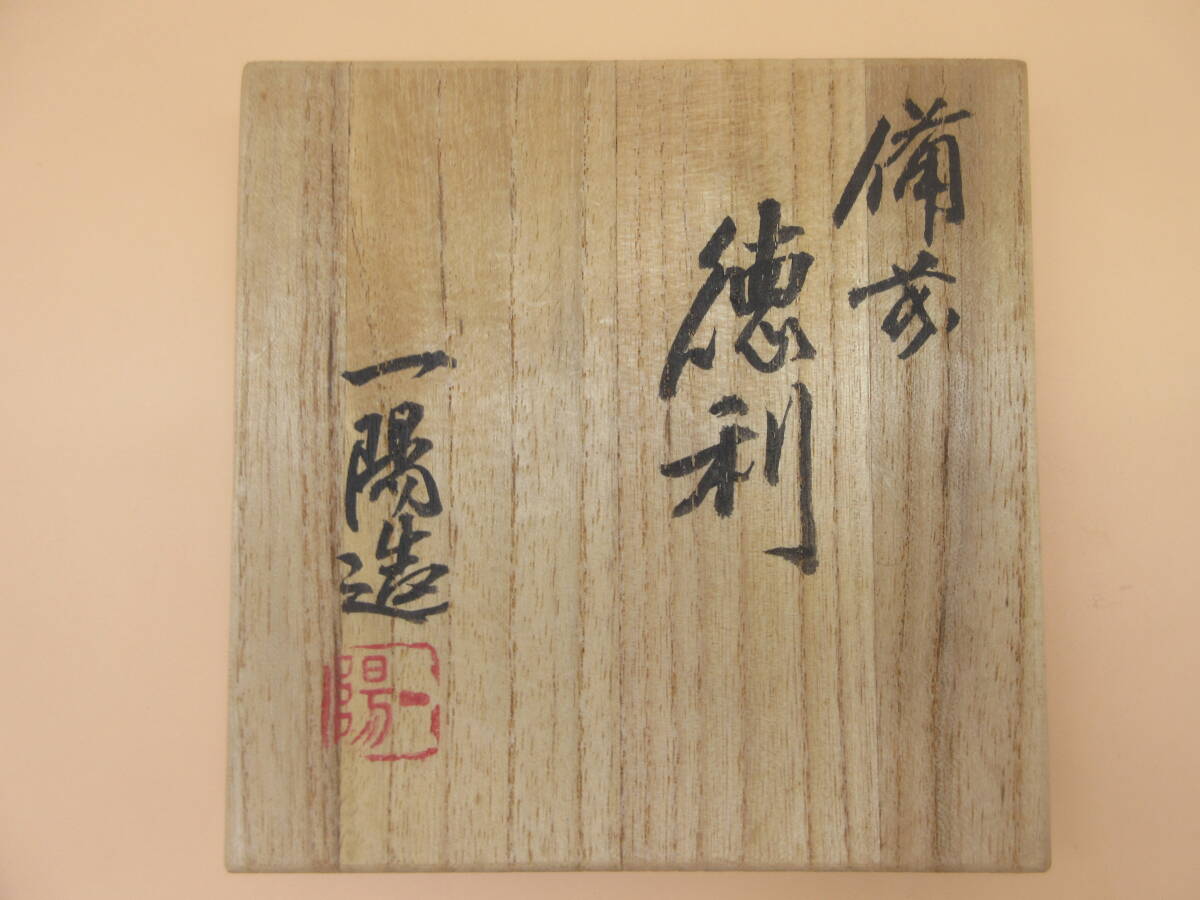 備前
徳利
一陽造
一陽